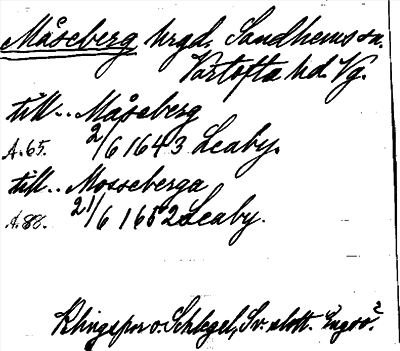 Måseberg hrgd, Sandhems sn.
Vartofta hd. Vg.
till.. Måseberg
A.65. 2/6 1643 Leaby.
till.. Mosseberga
A.88. 21/6 1652 Leaby.
Klingspor o. Schlegel, Sv. slott. Engsö?